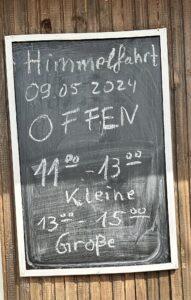 Himmelfahrt
09.05 2024
OFFEN
11⁰⁰ - 13⁰⁰
Kleine
13⁰⁰ - 15⁰⁰
Große